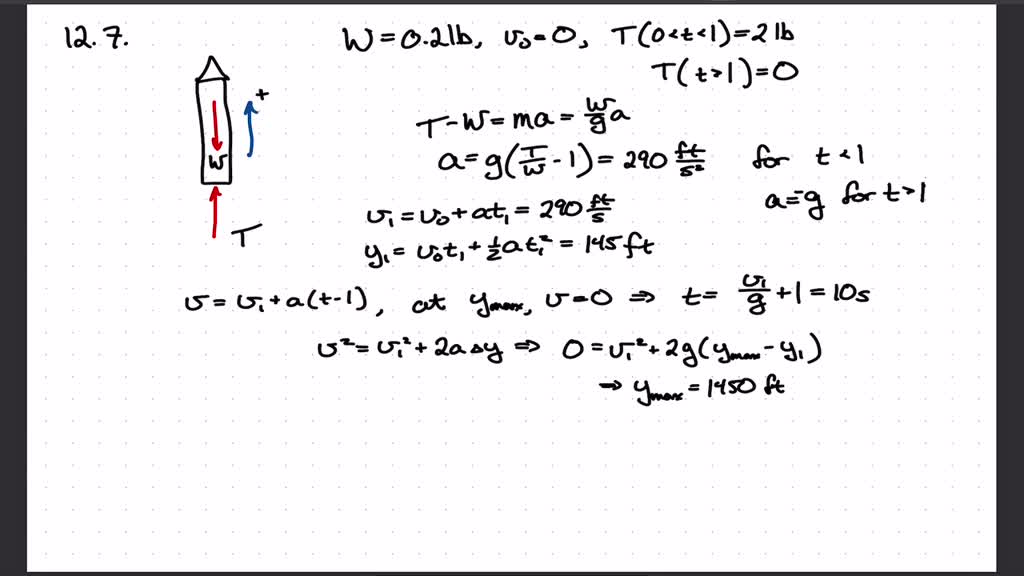 12.7.
W = 0.2 lb, v₀ = 0, T(0<t<1) = 2 lb
T(t>1) = 0
+
W
T
T - W = ma = W/g a
a = g(T/W - 1) = 290 ft/s² for t < 1
a = -g for t > 1
v₁ = v₀ + at₁ = 290 ft/s
y₁ = v₀t₁ + 1/2 at₁² = 145 ft
v = v₁ + a(t-1), at y_max, v = 0 ⇒ t = v₁/g + 1 = 10s
v² = v₁² + 2aΔy ⇒ 0 = v₁² + 2g(y_max - y₁)
⇒ y_max = 1450 ft